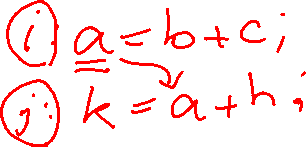 i: a = b + c;
j: k = a + h;